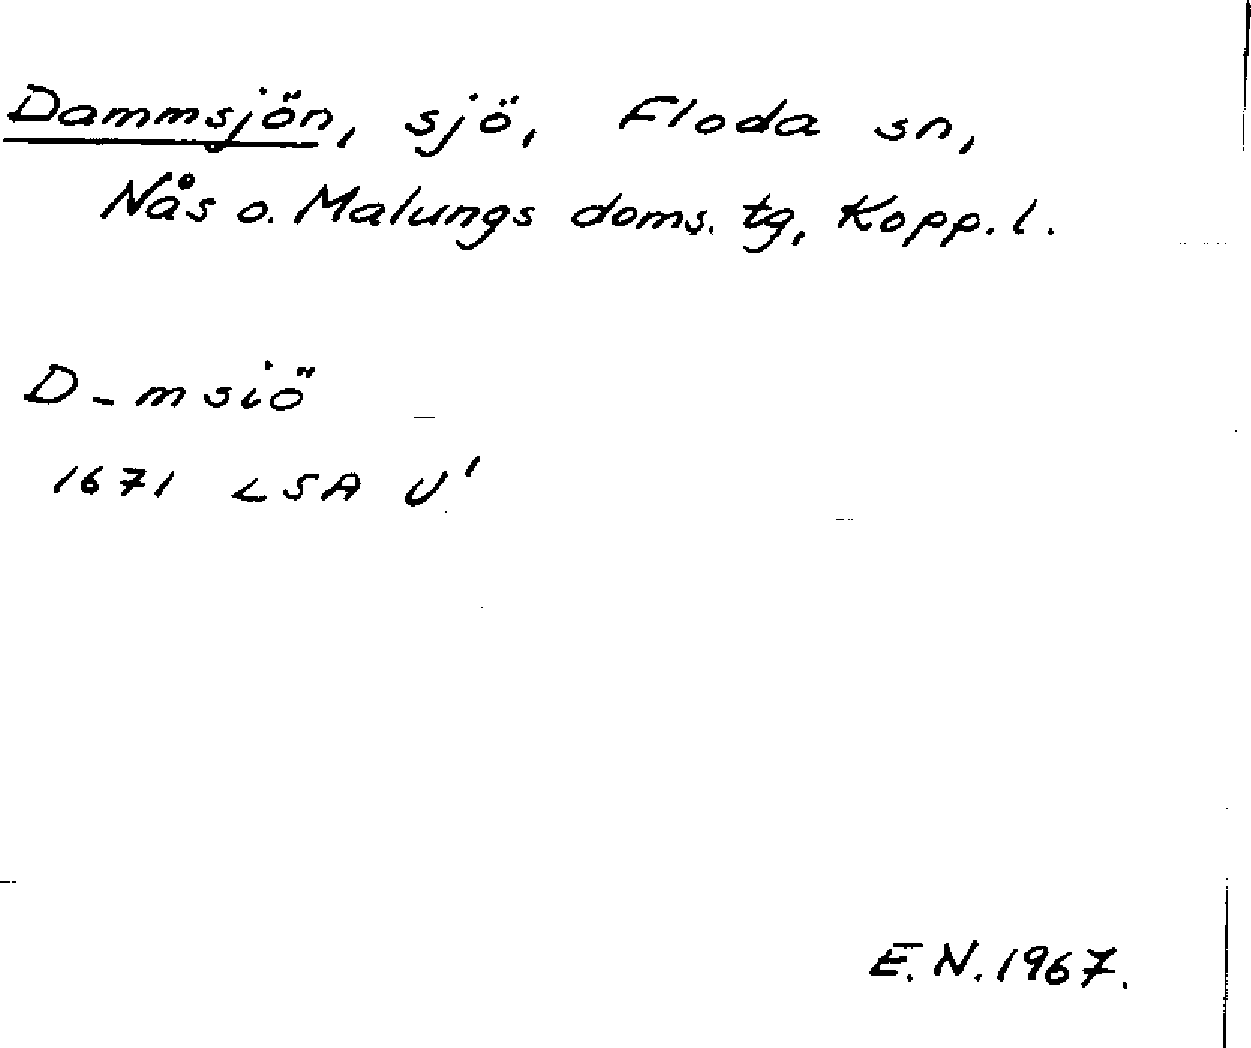 Dammsjön, sjö, Floda sn,
Nås o. Malungs doms. tg, Kopp. l.
D-msiö
1671 LSA U'
E.N. 1967.